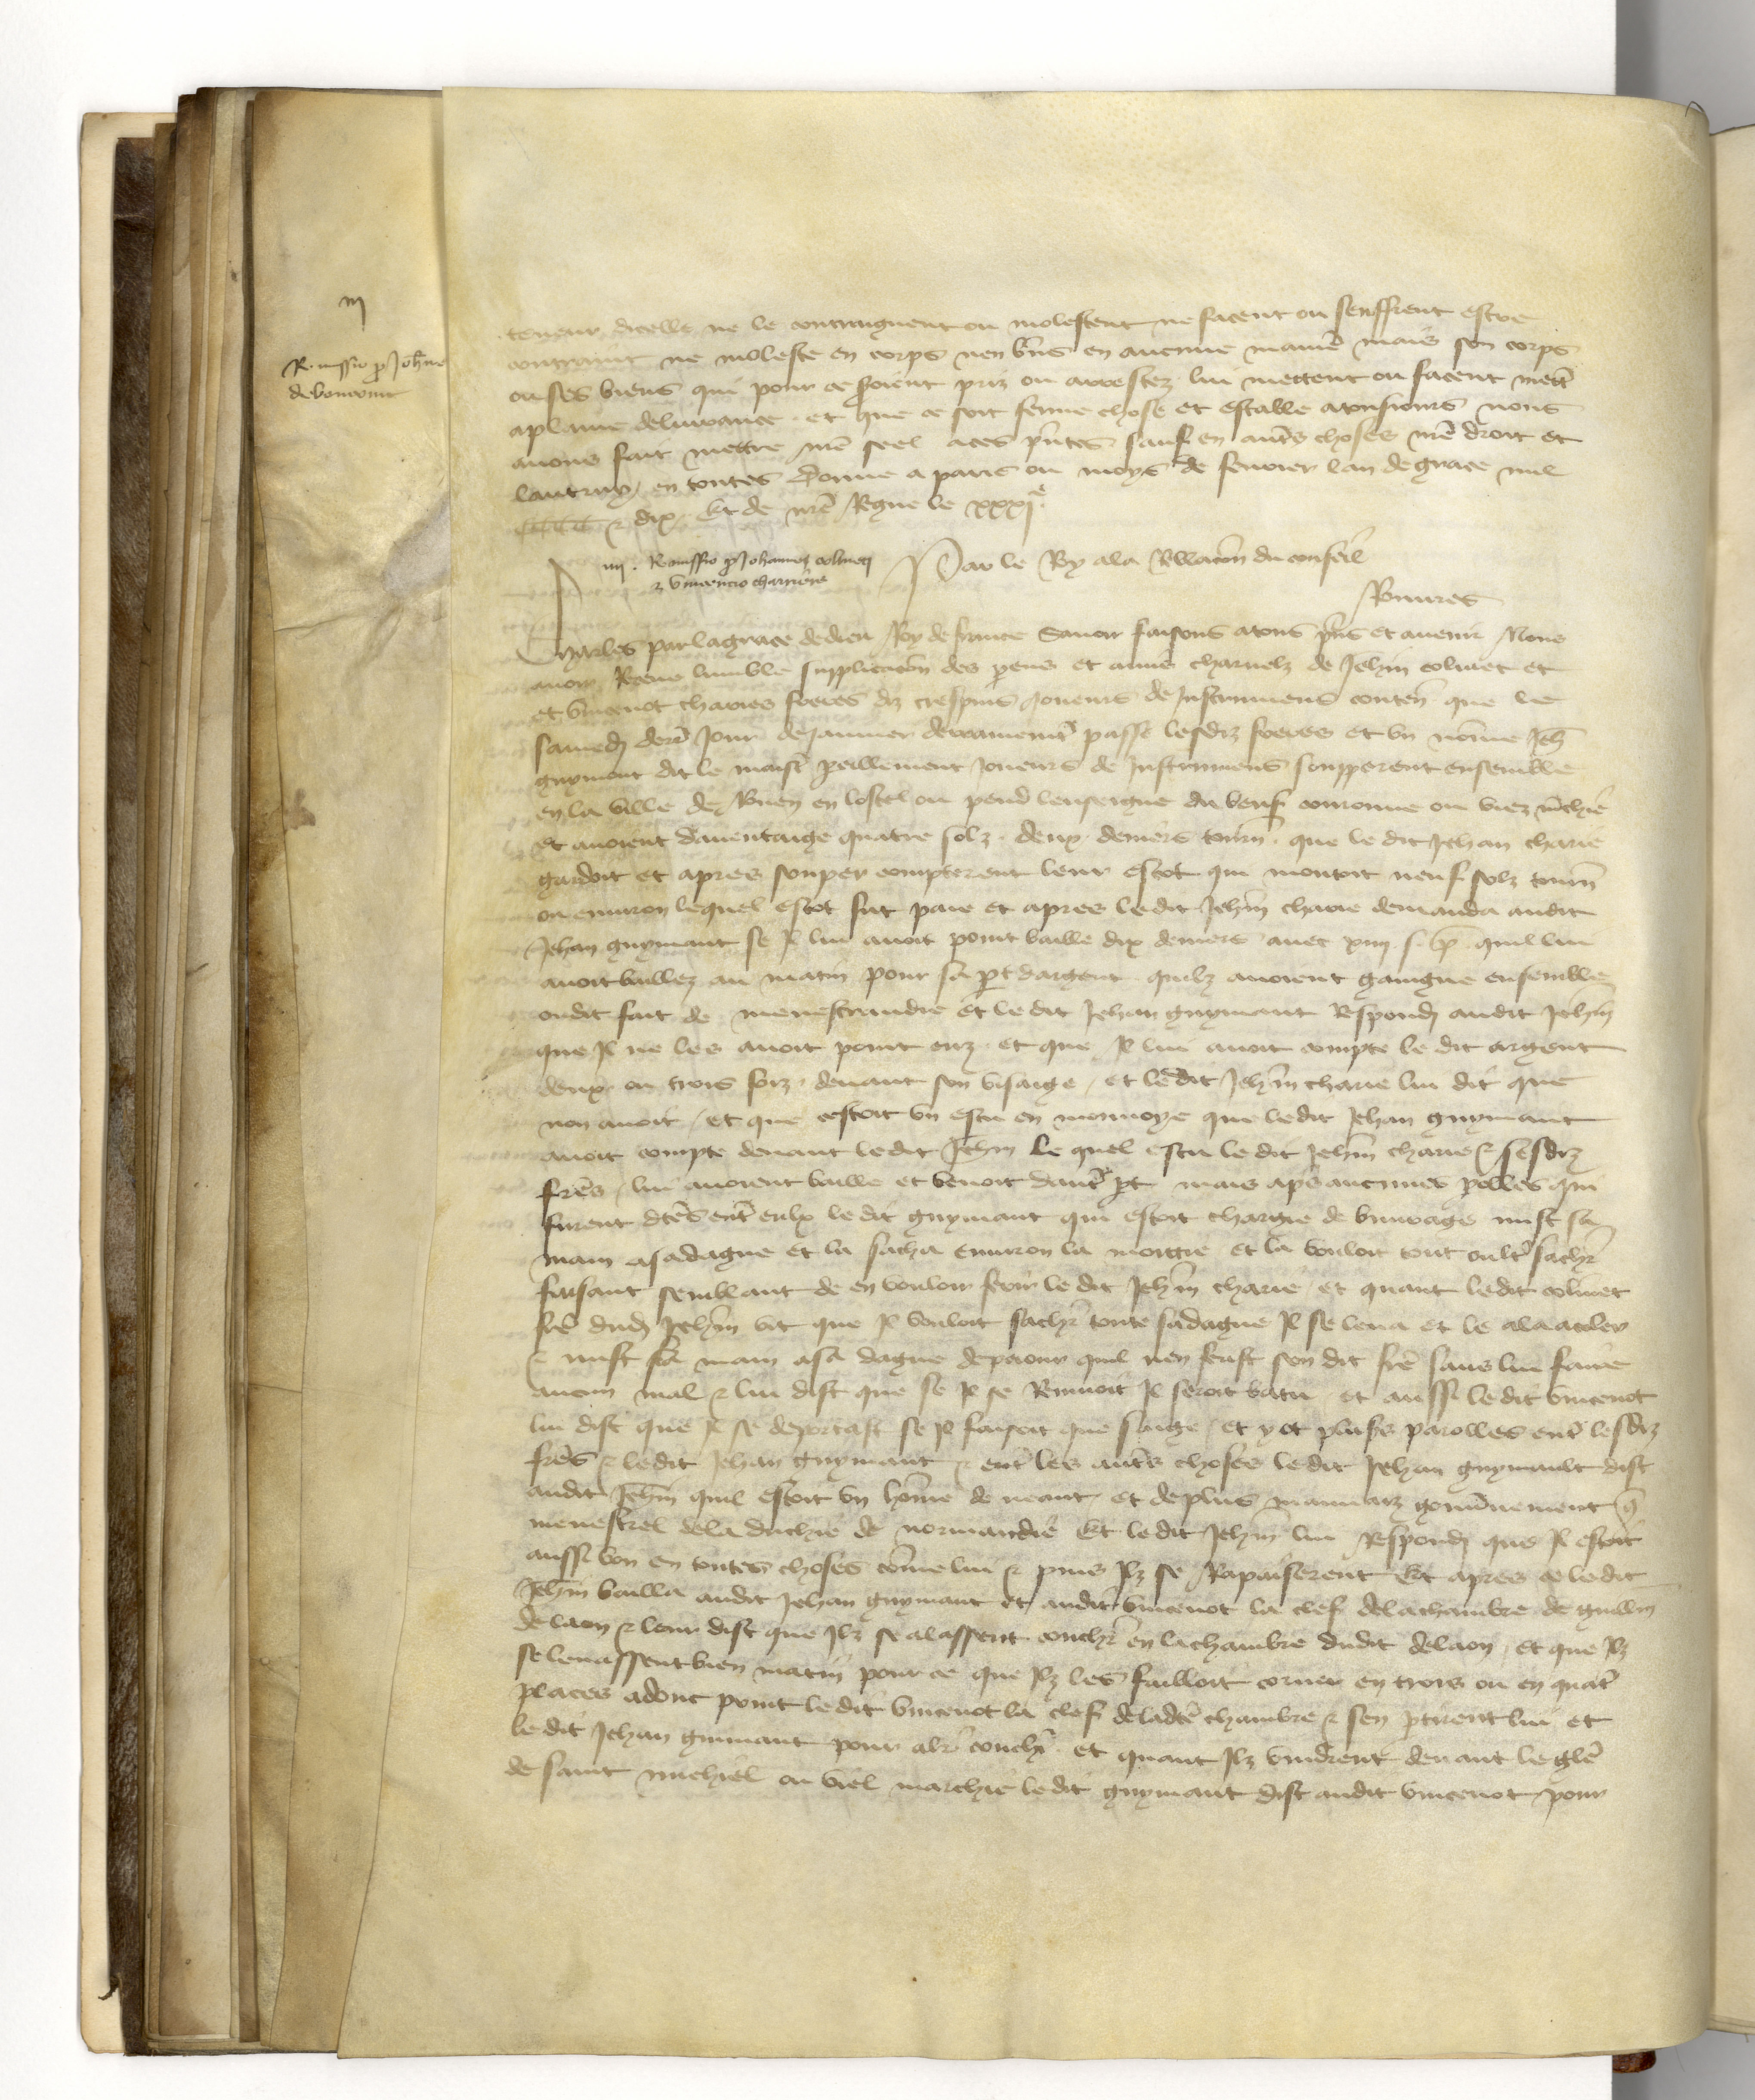 iij
Remissio pro Johanne
de boncourt
teneur dicelle ne le contraignent ou molestent ne facent ou seuffrent estre
contraint ne moleste en corps nen bñs en aucune maniẽ mais son corps
ou ses biens qui pour ce soient priz ou arrestez lui mettent ou facent mettẽ
a plaine deliurance et que ce soit ferme chose et estable a tousiours nous
auons fait mettre nrẽ seel a ces pñtes sauf en autẽs choses nrẽ droit et
lautruy en toutes Donne a paris ou moys de feurier lan de grace mil
cccc et dix Et de nrẽ Regne le xxxje
iiij. Remissio pro Johanne colinet
et vincencio charriere
Par le Roy a la Relacion du conseil
Charles par la grace de dieu Roy de france Sauoir faisons a tous pñs et auenir Nous
auoir Receu lumble supplicacion des parens et amis charnelz de Jehin colinet et
et vincenot charies freres diz crespins joueurs de Instrumens contenã que le
samedi derẽ jour de januier derrainemẽt passe lesdiz freres et vn nomme Jeh̃
guymant dit le moistẽ pareillement joueurs de Instrumens soupperent ensemble
en la ville de Rouen en lostel ou pend lenseigne du beuf couronne ou viez mãchie
et auoient dauentaige quatre solz deux deniers tourñ que le dit Jehan charie
gardoit et apres souper compterent leur escot qui montoit neuf solz tourñ
ou enuiron lequel escot fut paie et apres ledit Jehin charie demanda audit
Jehan guymant se Jl lui auoit point baille dix deniers auec xiiij s. p̃ quil lui
auoit baillez au matin pour sa part dargent quilz auoient gaingne ensemble
oudit fait de menestraudie et ledit Jehan guymant Respondi audit Jehin
que Jl ne les auoit point euz et que Jl lui auoit compte le dit argent
deux ou trois foiz deuant son visaige / et le dit Jehin charie lui dit que
non auoit / et que cestoit vn escu en monnoye que ledit Jehan guymant
auoit compte deuant ledit Jehin Le quel escu le dit Jehin charie et sesdiz
frẽs lui auoient baille et venoit dautẽ part mais apẽs aucunes parolles qui
furent dctẽs entẽ eulx le dit guymant qui estoit chargie de buuraige mist sa
main a sa dague et la sacha enuiron la moittie et la vouloit tout oultẽ sachẽr
faisant semblant de en vouloir ferir le dit Jehin charie et quant ledit colinet
frẽ dudi Jehin vit que Jl vouloit sachẽr toute sa dague Jl se leua et le ala acoler
et mist sa main a sa dague de paour quil nen ferist son dit frẽ sans lui faire
aucun mal et lui dist que se Jl se Remuoit Jl seroit batu et aussi le dit vincenot
lui dist que Jl se deportast se Jl faisoit que saige / et y ot plusẽs parolles entẽ lesdiz
frẽs et ledit Jehan guymant et entẽ les autẽs choses ledit Jehan guymant dist
audit Jehin quil estoit vn home de neant et de plus mauuaiz gouuernement q̃
menestrel de la duchie de normandie Et ledit Jehin lui Respondi que Jl estoit
aussi bon en toutes choses come lui et puis Jlz se Rapaiserent Et apres ce ledit
Jehin bailla audit Jehan guymant et audit vincenot la clef de la chambre de guillin
de laon et leur dist que Jlz se alassent couchẽr en la chambre dudit de laon / et que Jlz
se leuassent bien matin pour ce que Jlz les failloit corner en trois ou en quatẽ
places adonc print le dit vincenot la clef de ladctẽ chambre et sen partirent lui et
ledit Jehan guimant pour alẽr couchẽr et quant Jlz vindrent deuant leglẽ
de saint michiel ou viel marchie ledit guymant dist audit vincenot pour